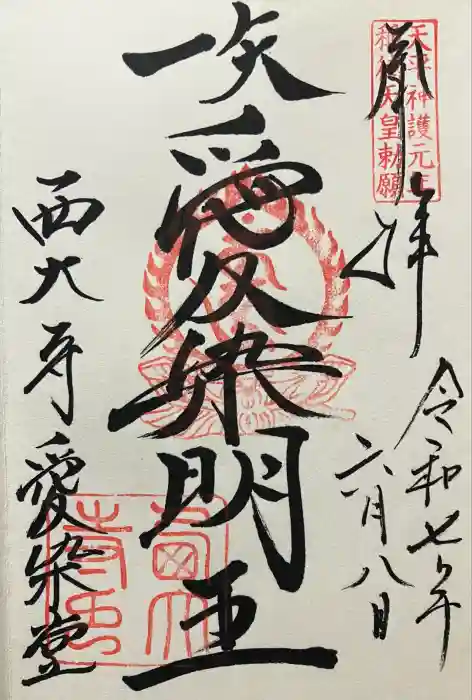 奉拝
天平神護元年
稱徳天皇勅願
令和七年
六月八日
一矢
愛染明王
西大寺愛染堂